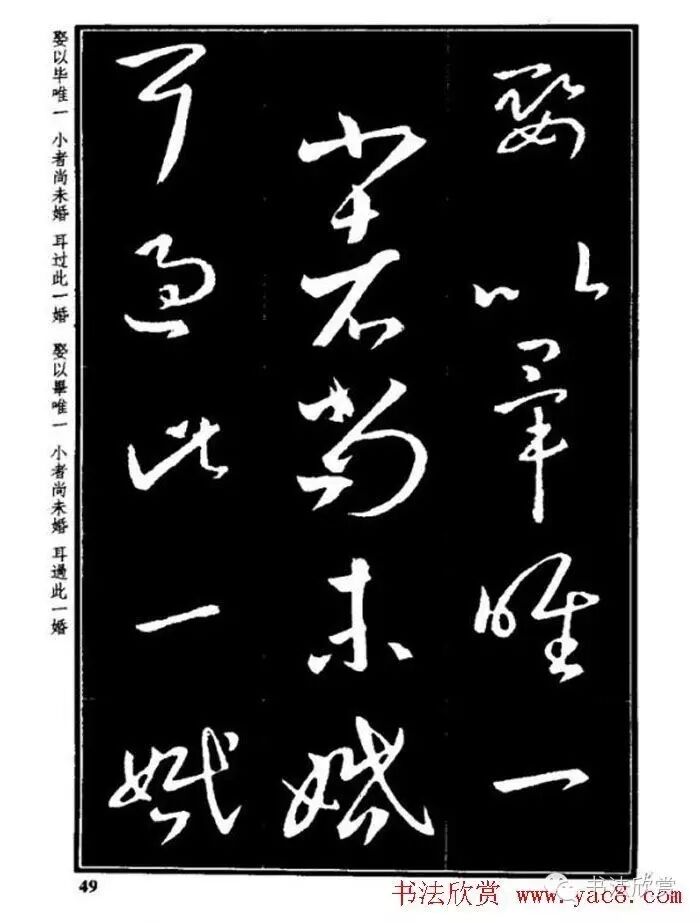 娶以毕唯一　小者尚未婚　耳过此一婚　娶以畢唯一　小者尚未婚　耳過此一婚
娶以畢唯一
小者尚未婚
耳過此一婚
49
书法欣赏
书法欣赏 www.yac8.com